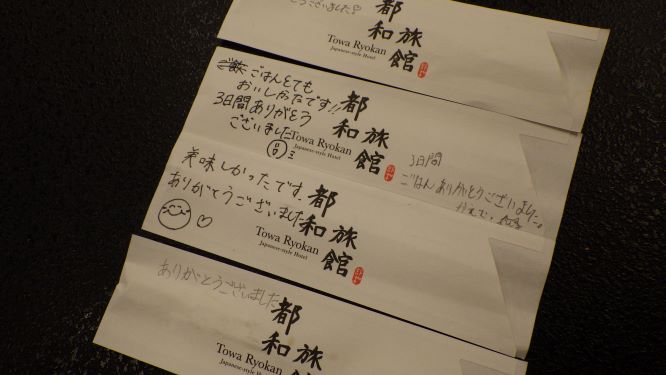 ございました
都和旅館
Towa Ryokan
Japanese-style Hotel
ごはんとても
おいしかったです!!
3日間ありがとう
ございました
都和旅館
Towa Ryokan
Japanese-style Hotel
3日間
ごはんありがとうございました。
美味しかったです。
ありがとうございました
都和旅館
Towa Ryokan
Japanese-style Hotel
ありがとうございました
都和旅館
Towa Ryokan
Japanese-style Hotel